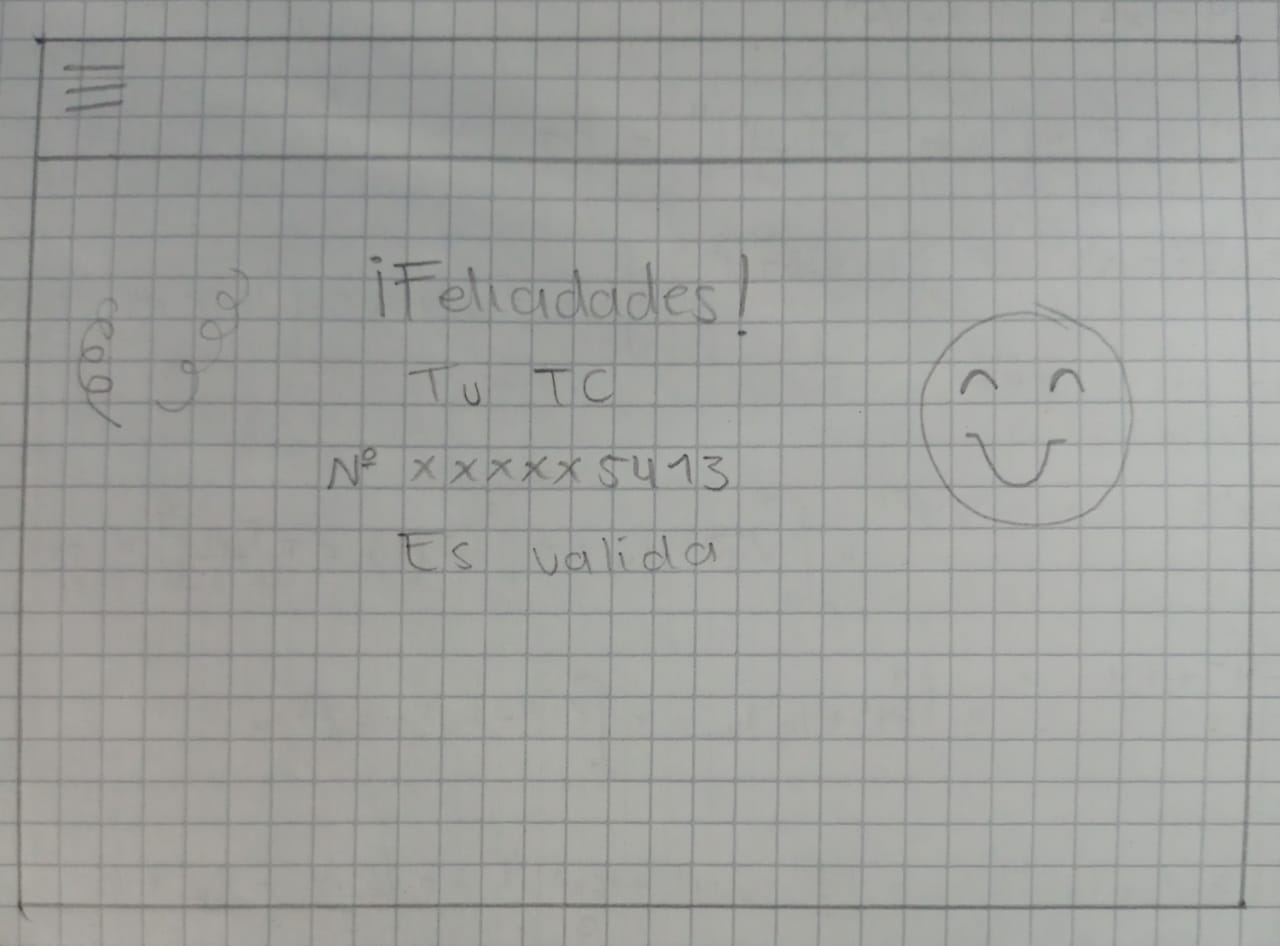 ¡Feliadades!
Tu TC
Nº xxxxx5413
Es valida